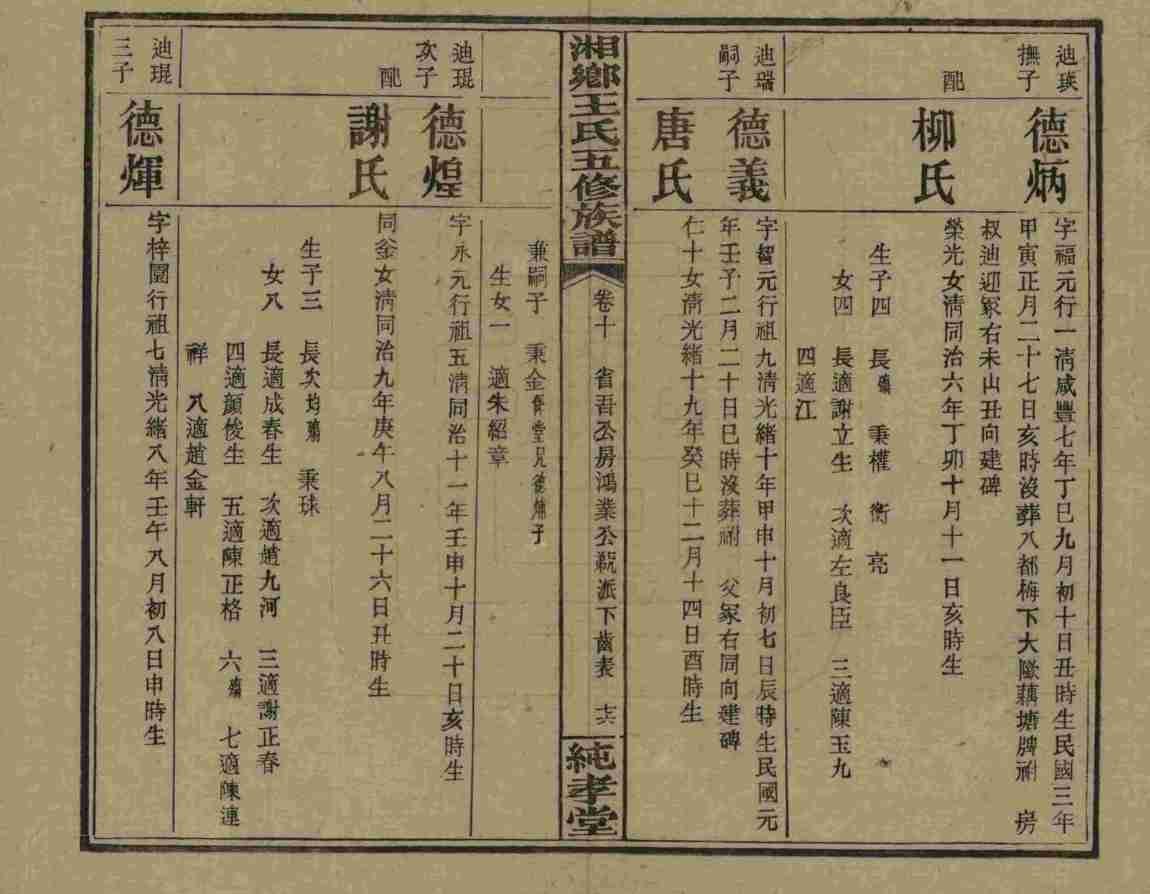 迪瑛
撫子
德炳
字福元行一淸咸豐七年丁巳九月初十日丑時生民國三年
甲寅正月二十七日亥時沒葬八都梅下大墩藕塘牌祔 房
叔迪迎冢右未山丑向建碑
配
柳氏
榮光女淸同治六年丁卯十月十一日亥時生
生子四 長殤 秉權 衡 亮
女四 長適謝立生 次適左良臣 三適陳玉九
四適江
迪瑞
嗣子
德義
字智元行祖九淸光緒十年甲申十月初七日辰時生民國元
年壬子二月二十日巳時沒葬祔 父冢右同向建碑
唐氏
仁十女淸光緒十九年癸巳十二月十四日酉時生
湘鄉王氏五修族譜
卷十 省吾公房鴻業公派下齒表
純孝堂
兼嗣子 秉金胥堂兄德煒子
生女一 適朱紹章
迪琨
次子
德煌
字永元行祖五淸同治十一年壬申十月二十日亥時生
配
謝氏
同釜女淸同治九年庚午八月二十六日丑時生
生子三 長次均殤 秉球
女八 長適成春生 次適趙九河 三適謝正春
四適顏俊生 五適陳正格 六殤 七適陳連
祥 八適趙金軒
迪琨
三子
德煇
字梓園行祖七淸光緒八年壬午八月初八日申時生